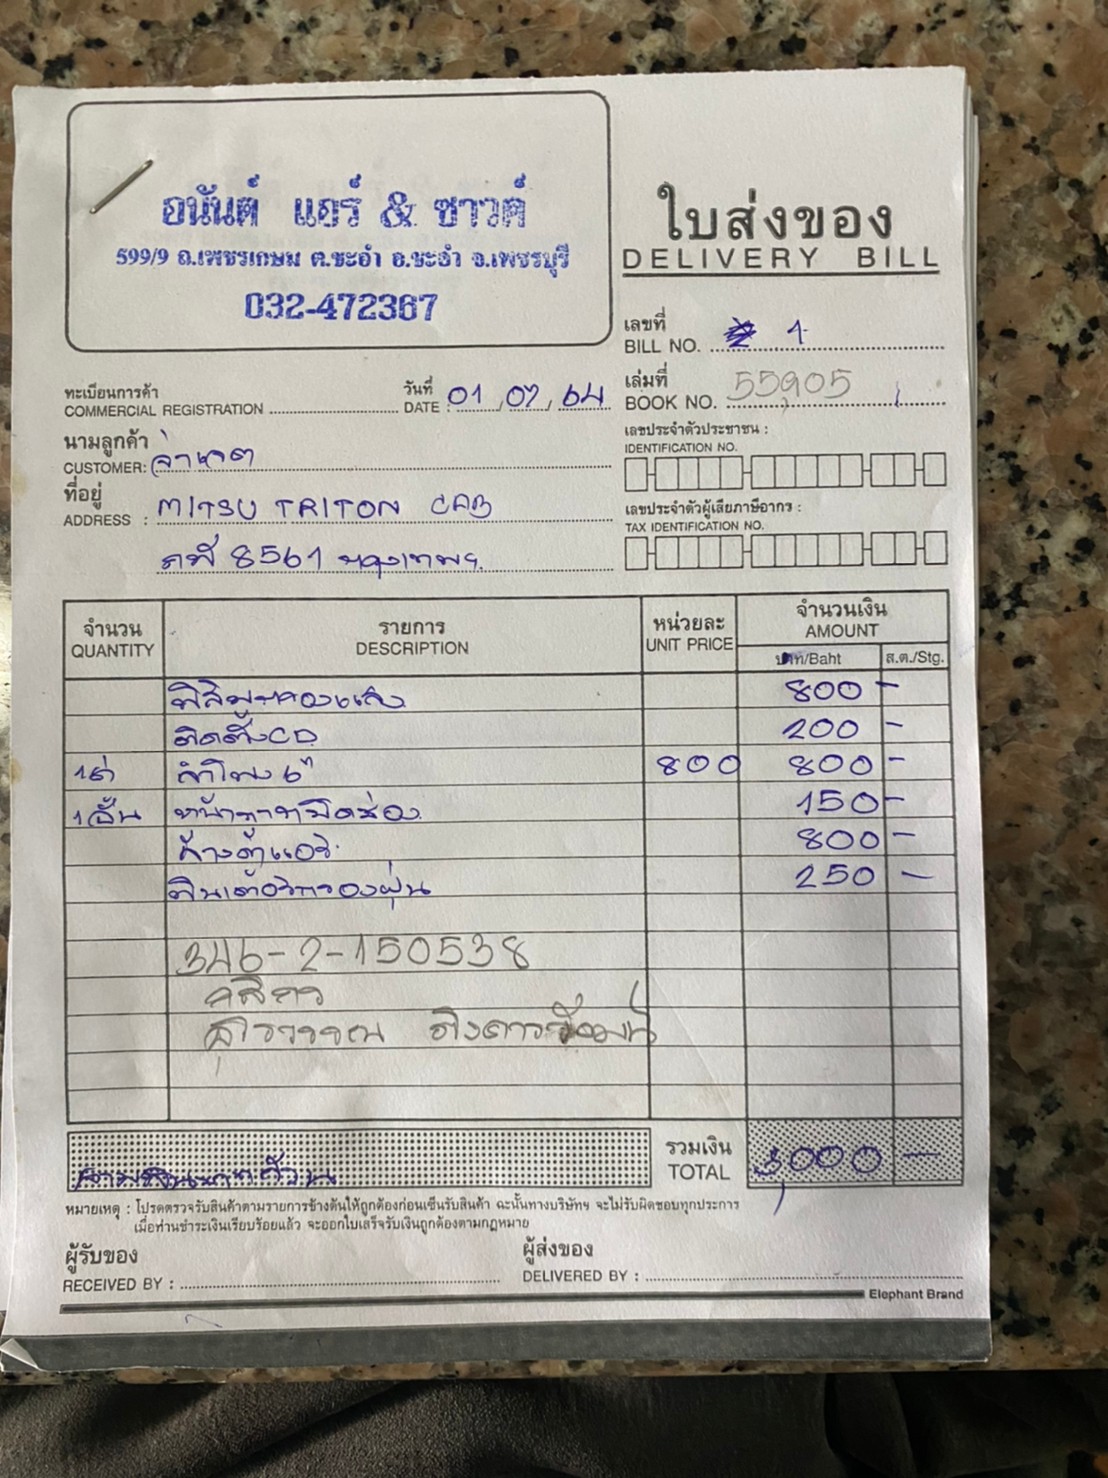 อนันต์ แอร์ & ซาวด์
599/9 ถ.เพชรเกษม ต.ชะอำ อ.ชะอำ จ.เพชรบุรี
032-472367
ใบส่งของ
DELIVERY BILL
เลขที่
BILL NO. 1
ทะเบียนการค้า
COMMERCIAL REGISTRATION
วันที่
DATE : 01, 07, 64
เล่มที่
BOOK NO. 55905
นามลูกค้า
CUSTOMER:
เลขประจำตัวประชาชน :
IDENTIFICATION NO.
ที่อยู่
ADDRESS : MITSU TRITON CAB
8561 กรุงเทพฯ
เลขประจำตัวผู้เสียภาษีอากร :
TAX IDENTIFICATION NO.
จำนวน
QUANTITY
รายการ
DESCRIPTION
หน่วยละ
UNIT PRICE
จำนวนเงิน
AMOUNT
บาท/Baht ส.ต./Stg.
ฟิล์มกรองแสง 800 -
ติดตั้ง CD 200 -
1คู่ ลำโพง 6" 800 800 -
1อัน หน้ากากปิดช่อง 150 -
ล้างตู้แอร์ 800 -
ฟินเตอร์กรองฝุ่น 250 -
346-2-150538
กสิกร
สุวรรณ
สามพันบาทถ้วน
รวมเงิน
TOTAL
3,000 -
หมายเหตุ : โปรดตรวจรับสินค้าตามรายการข้างต้นให้ถูกต้องก่อนเซ็นรับสินค้า ฉะนั้นทางบริษัทฯ จะไม่รับผิดชอบทุกประการ
เมื่อท่านชำระเงินเรียบร้อยแล้ว จะออกใบเสร็จรับเงินถูกต้องตามกฎหมาย
ผู้รับของ
RECEIVED BY :
ผู้ส่งของ
DELIVERED BY :
Elephant Brand